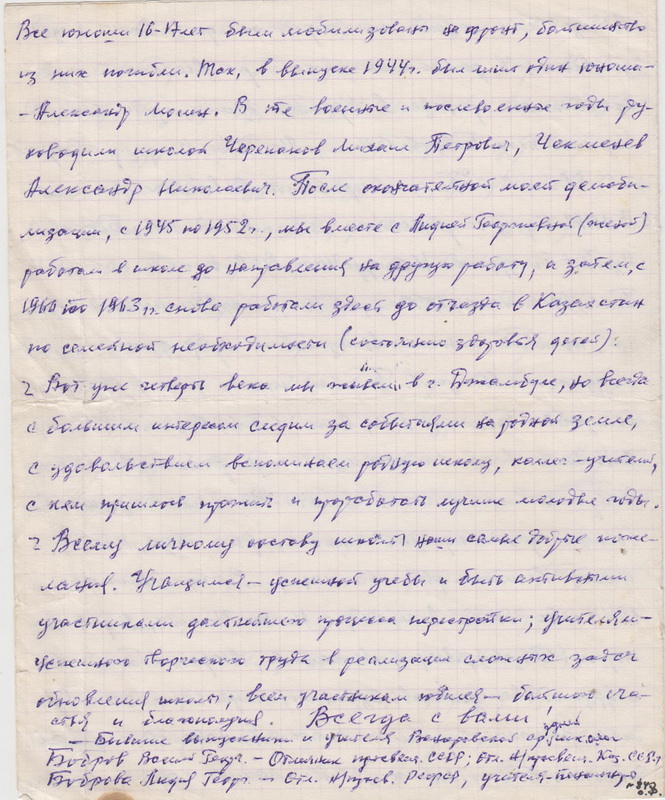 Все юноши 16-17 лет были мобилизованы на фронт, большинство
из них погибли. Так, в выпуске 1944 г. был лишь один юноша-
-Александр Мошен. В те военные и послевоенные годы ру-
ководили школой Черепанов Михаил Петрович, Чекменев
Александр Николаевич. После окончательной моей демоби-
лизации, с 1945 по 1952 г., мы вместе с Лидией Георгиевной (женой)
работали в школе до направления на другую работу, а затем, с
1960 по 1963 г. снова работали здесь до отъезда в Казахстан
по семейной необходимости (состоянию здоровья детей).
Вот уже четверть века мы живем в г. Джамбуле, но всегда
с большим интересом следим за событиями на родной земле,
с удовольствием вспоминаем родную школу, коллег-учителей,
с кем пришлось прожить и проработать лучшие молодые годы.
Всему личному составу школы наши самые добрые поже-
лания. Учащимся - успешной учебы и быть активными
участниками дальнейшего процесса перестройки; учителям-
успешного творческого труда в реализации сложных задач
обновления школы; всем участникам юбилея - большого сча-
стья и благополучия. Всегда с вами!
- Бывшие выпускники и учителя средней школы
Бобров Георг. - Отличник просвещ. СССР; Отл. н/просвещ. Каз. ССР,
Боброва Лидия Георг. - Отл. н/просв. РСФСР, учитель-